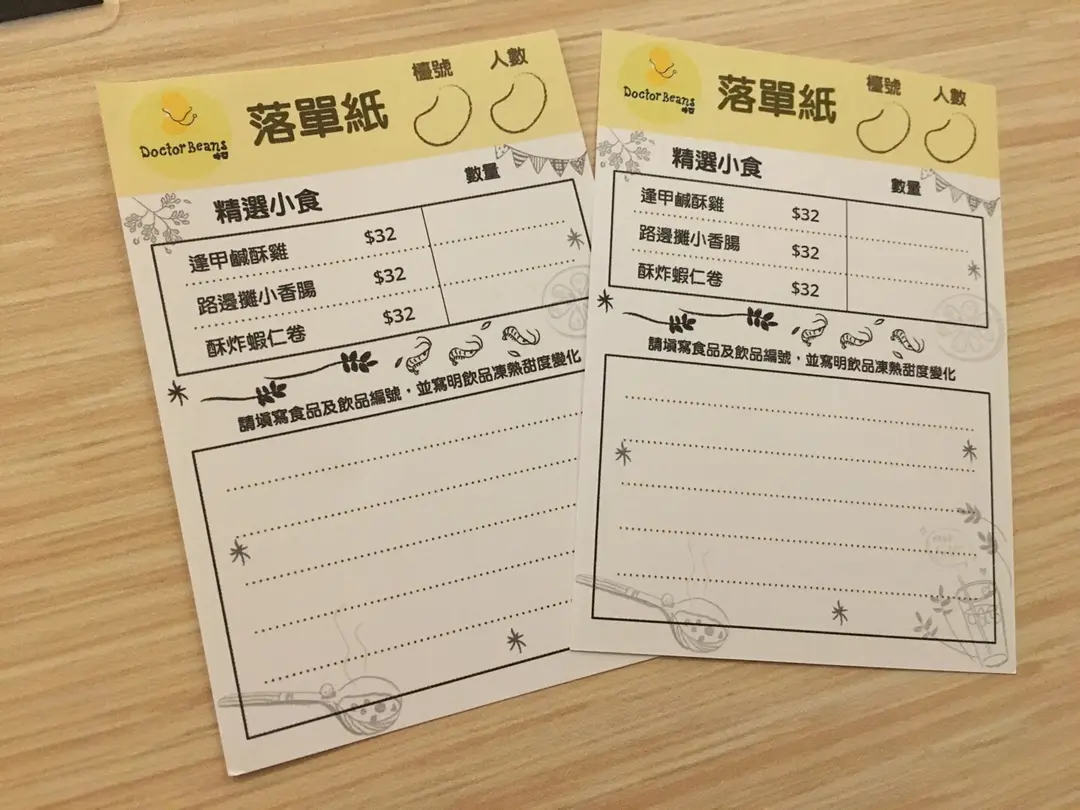 Doctor Beans
落單紙
檯號 人數
精選小食 數量
逢甲鹹酥雞 $32
路邊攤小香腸 $32
酥炸蝦仁卷 $32
請填寫食品及飲品編號，並寫明飲品凍熱甜度變化
Doctor Beans
落單紙
檯號 人數
精選小食 數量
逢甲鹹酥雞 $32
路邊攤小香腸 $32
酥炸蝦仁卷 $32
請填寫食品及飲品編號，並寫明飲品凍熱甜度變化